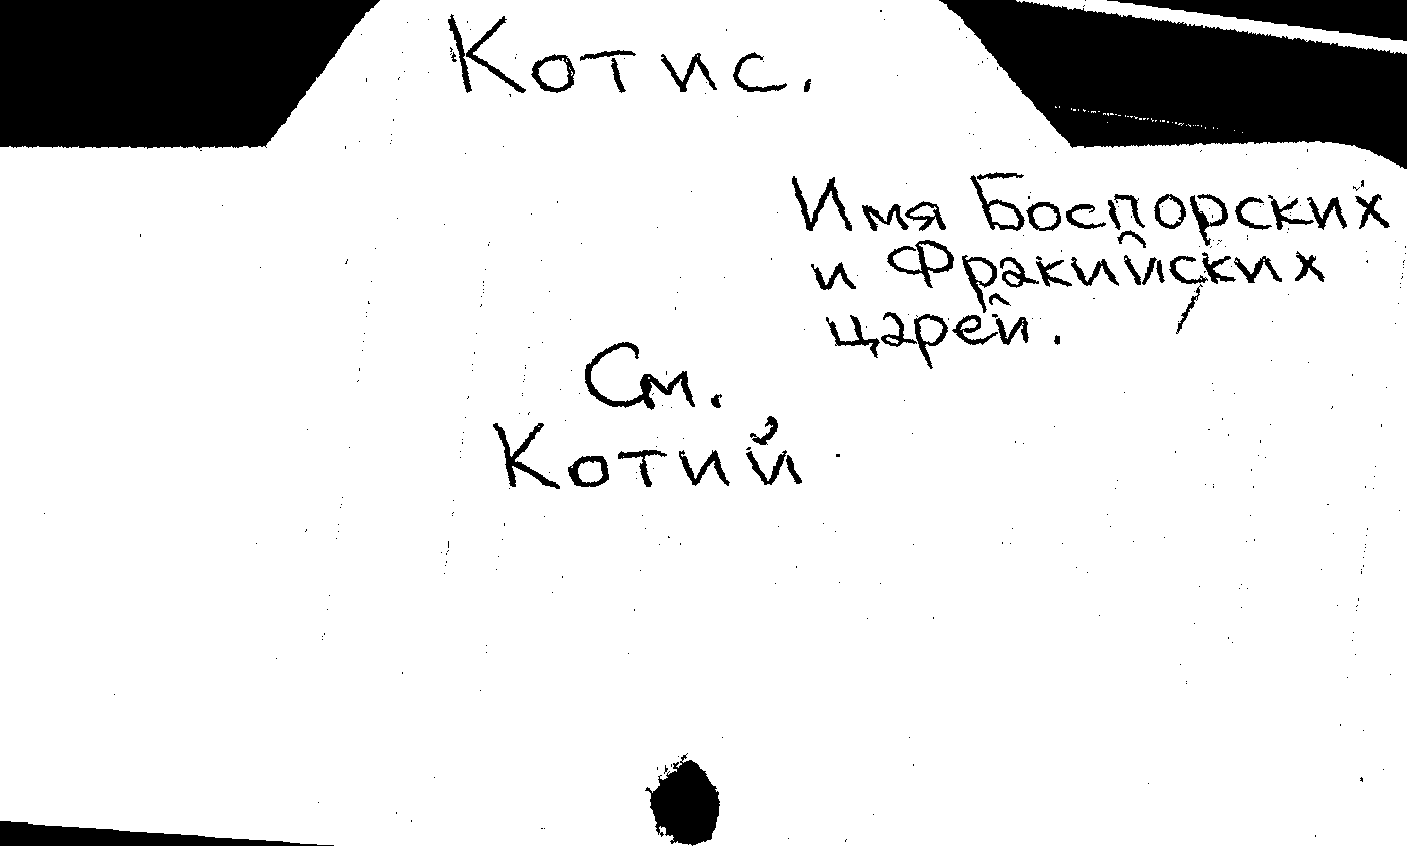 Котис.
Имя Боспорских
и Фракийских
царей.
См.
Котий